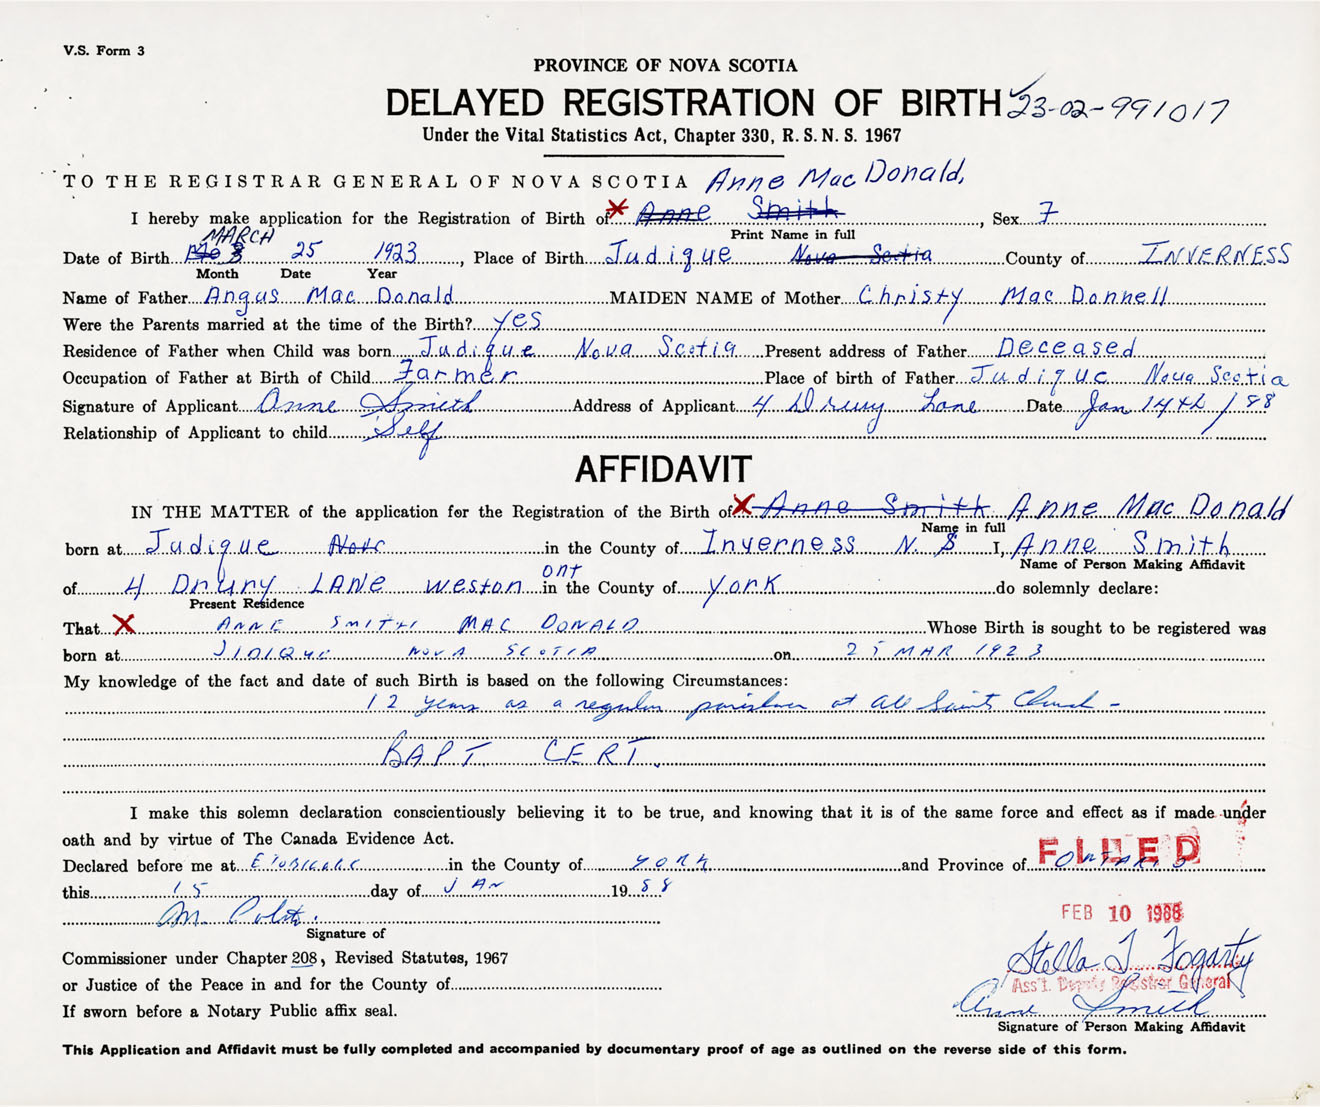 V.S. Form 3
PROVINCE OF NOVA SCOTIA
DELAYED REGISTRATION OF BIRTH 23-02-991017
Under the Vital Statistics Act, Chapter 330, R. S. N. S. 1967
TO THE REGISTRAR GENERAL OF NOVA SCOTIA Anne Mac Donald,
I hereby make application for the Registration of Birth of X Anne Smith, Sex 7
Print Name in full
MARCH
Date of Birth 25 1923, Place of Birth Judique Nova Scotia County of INVERNESS
Month Date Year
Name of Father Angus Mac Donald MAIDEN NAME of Mother Christy Mac Donnell
Were the Parents married at the time of the Birth? yes
Residence of Father when Child was born Judique Nova Scotia Present address of Father Deceased
Occupation of Father at Birth of Child Farmer Place of birth of Father Judique Nova Scotia
Signature of Applicant Anne Smith Address of Applicant 4 Drury Lane Date Jan 14th / 88
Relationship of Applicant to child Self
AFFIDAVIT
IN THE MATTER of the application for the Registration of the Birth of X Anne Smith Anne Mac Donald
Name in full
born at Judique Nov in the County of Inverness N. S I, Anne Smith
Name of Person Making Affidavit
ont
of 4 Drury LANE Weston in the County of York do solemnly declare:
Present Residence
That X ANNE SMITH MAC DONALD Whose Birth is sought to be registered was
born at JIDIQUE NOVA SCOTIA on 25 MAR 1923
My knowledge of the fact and date of such Birth is based on the following Circumstances:
12 years as a regular parishioner at All Saints Church -
BAPT. CERT.
I make this solemn declaration conscientiously believing it to be true, and knowing that it is of the same force and effect as if made under
oath and by virtue of The Canada Evidence Act.
Declared before me at ETOBICOKE in the County of YORK and Province of ONTARIO
FILED
this 15 day of JAN 1988
FEB 10 1988
M.
Signature of
Stella J Fogarty
Commissioner under Chapter 208, Revised Statutes, 1967
Ass't. Deputy Registrar General
or Justice of the Peace in and for the County of
Anne Smith
If sworn before a Notary Public affix seal.
Signature of Person Making Affidavit
This Application and Affidavit must be fully completed and accompanied by documentary proof of age as outlined on the reverse side of this form.